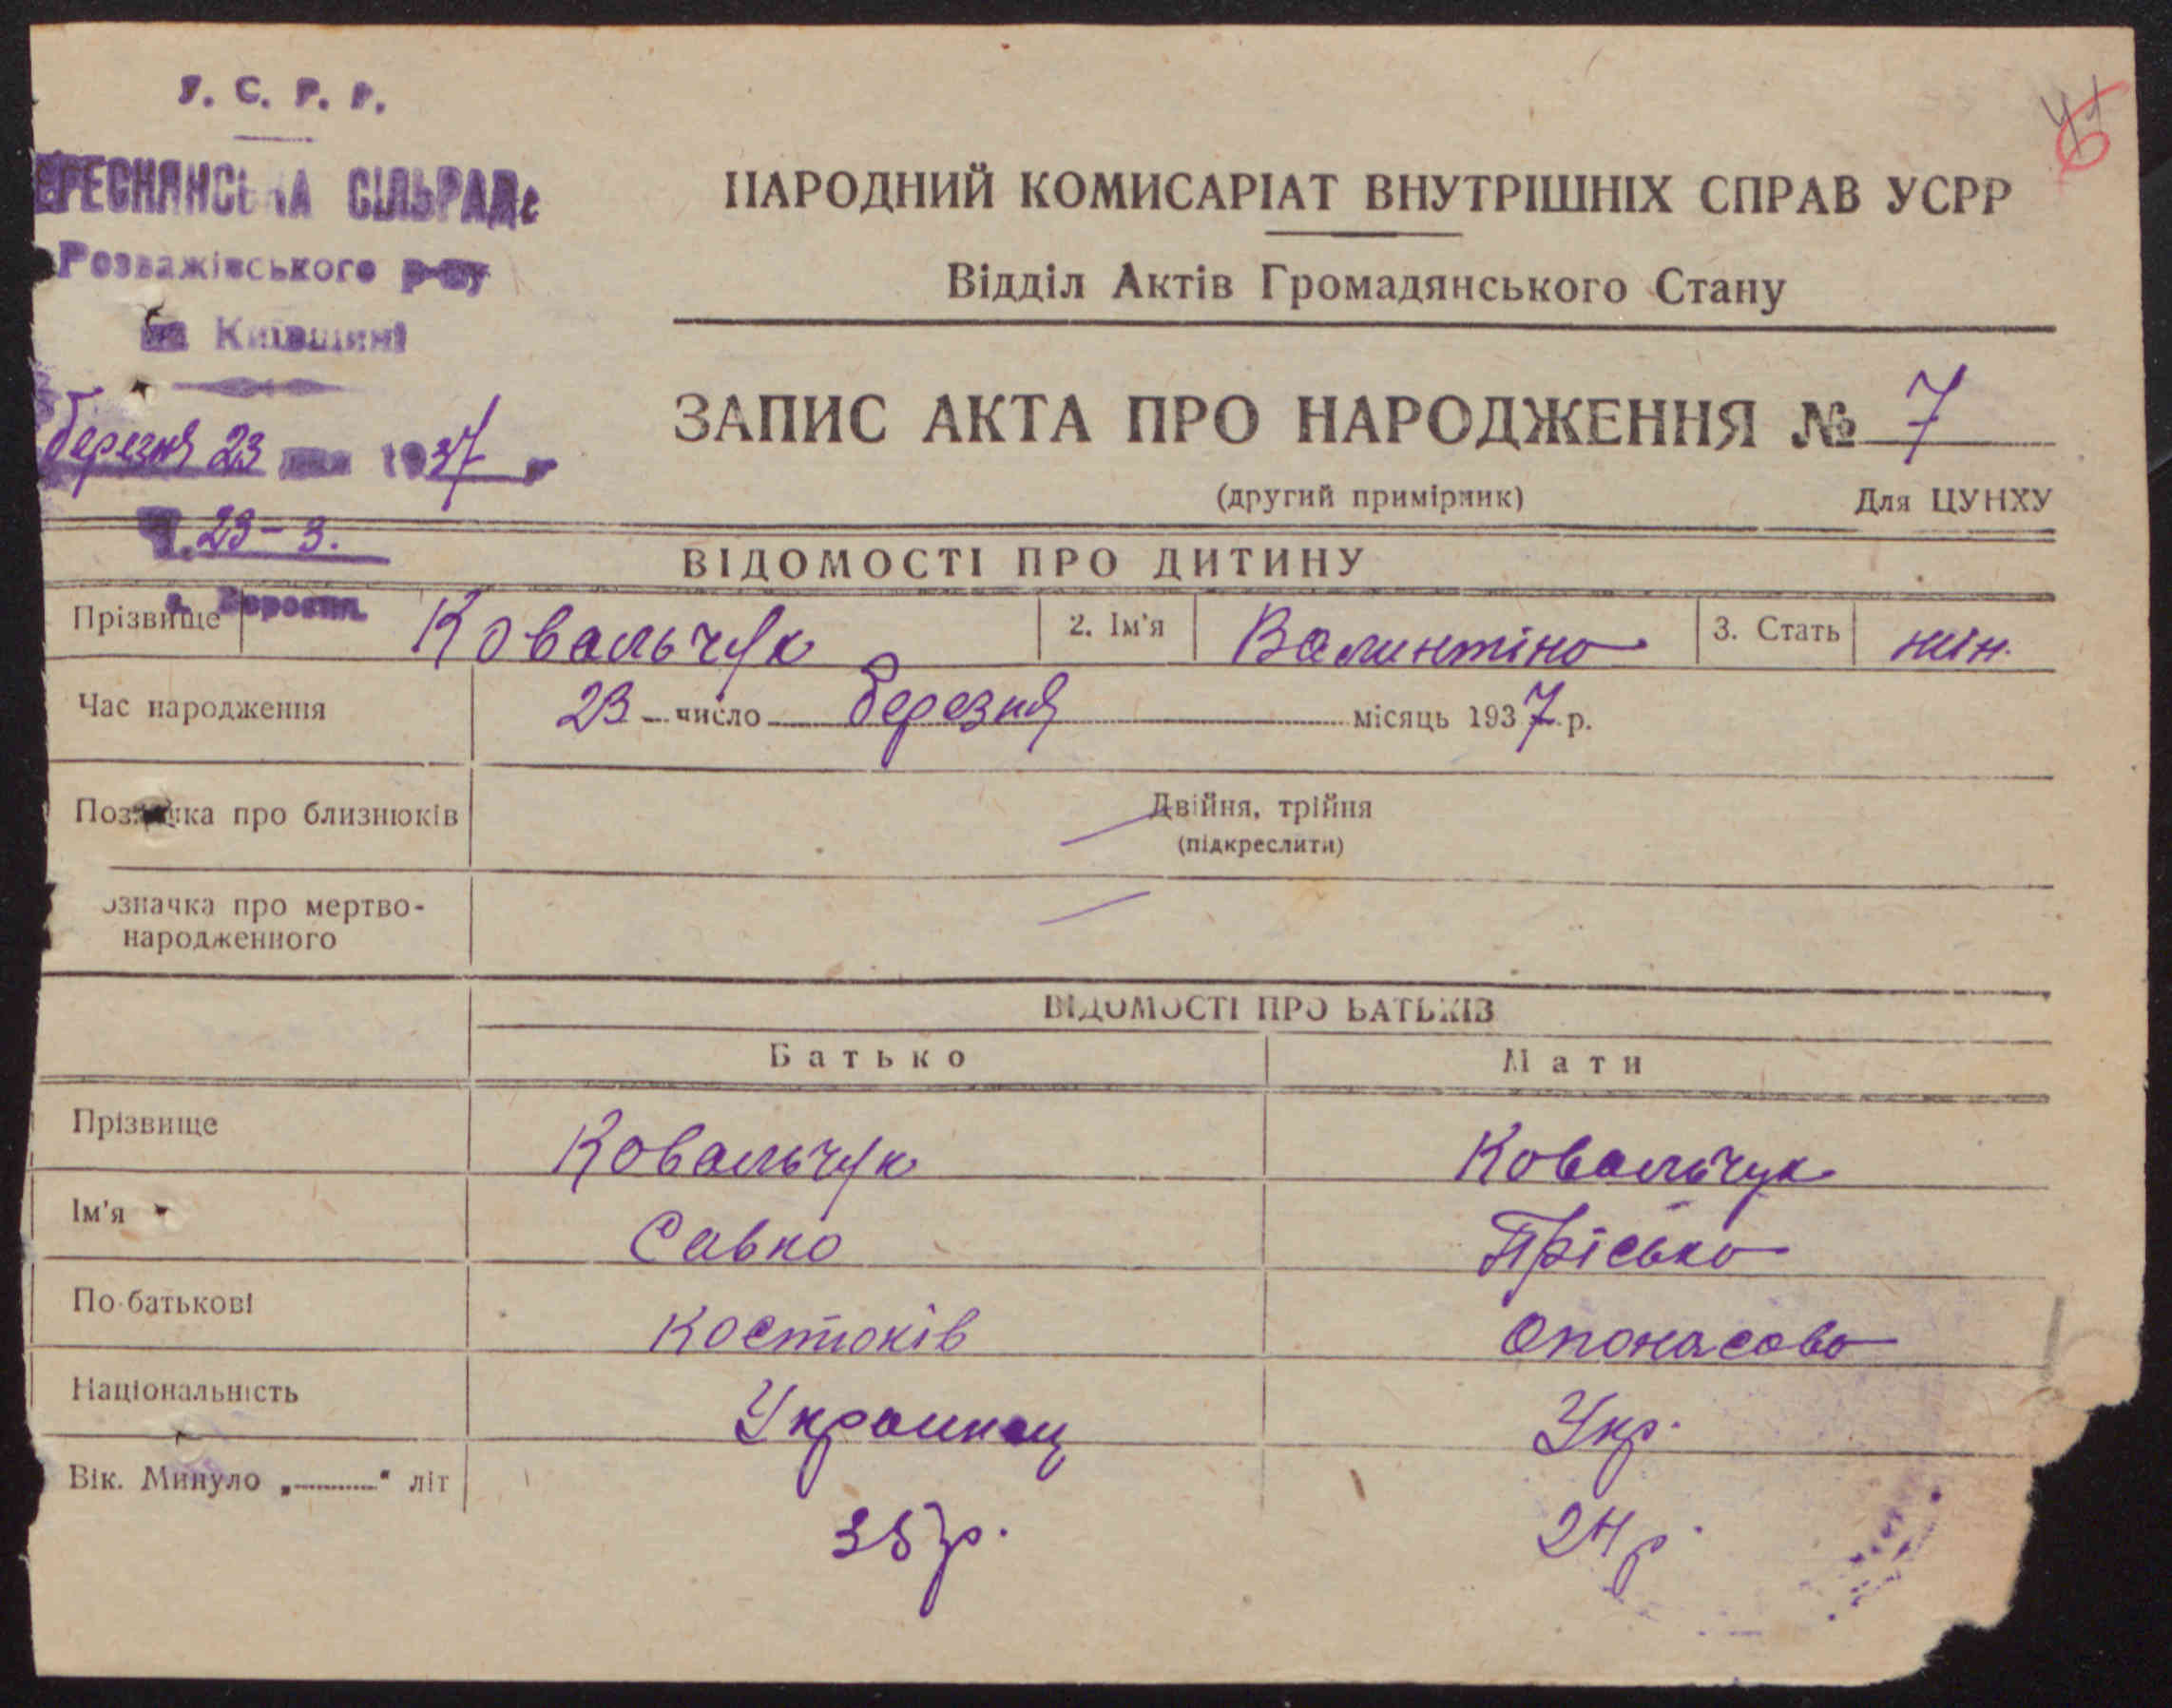 У. С. Р. Р.
ЕРЕСНЯНСЬКА СІЛЬРАДА
Розважівського р-ну
на Київщині
березня 23 дня 1937 р
Ч. 23-3.
с. Вересня
НАРОДНИЙ КОМИСАРІАТ ВНУТРІШНІХ СПРАВ УСРР
Відділ Актів Громадянського Стану
ЗАПИС АКТА ПРО НАРОДЖЕННЯ № 7
(другий примірник) Для ЦУНХУ
ВІДОМОСТІ ПРО ДИТИНУ
Прізвище Ковальчук 2. Ім'я Валинтіна 3. Стать жін.
Час народження 23 число березня місяць 1937 р.
Позначка про близнюків Двійня, трійня
(підкреслити)
означка про мертво-
народженного
ВІДОМОСТІ ПРО БАТЬКІВ
Батько Мати
Прізвище Ковальчук Ковальчук
Ім'я Савка Пріська
По-батькові Костюків Опонасова
Національність Украинец Укр.
Вік. Минуло „ “ літ
35 р. 24 р.